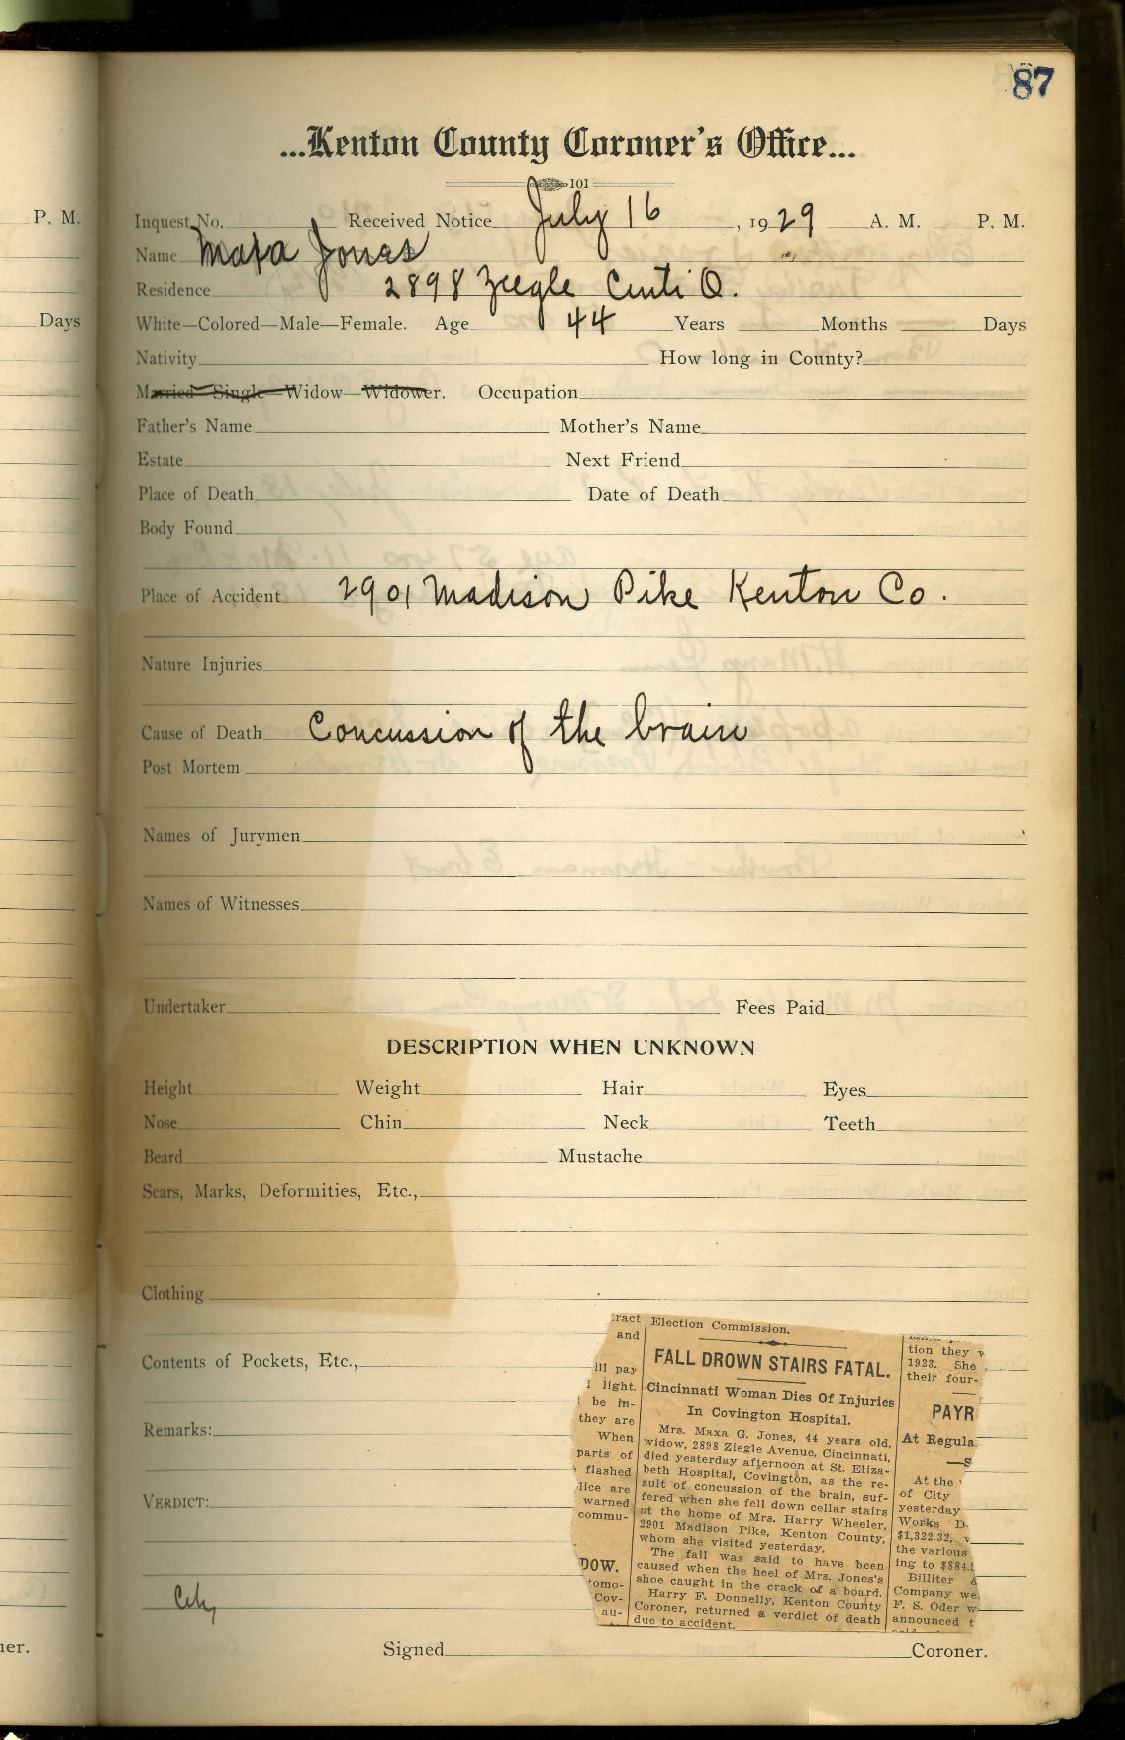 87
...Kenton County Coroner's Office...
101
P. M.
Inquest No. Received Notice July 16, 1929 A. M. P. M.
Name Maxa Jones
Residence 2898 Ziegle Cinti O.
Days
White—Colored—Male—Female. Age 44 Years Months Days
Nativity How long in County?
Married—Single—Widow—Widower. Occupation
Father's Name Mother's Name
Estate Next Friend
Place of Death Date of Death
Body Found
Place of Accident 2901 Madison Pike Kenton Co.
Nature Injuries
Cause of Death Concussion of the brain
Post Mortem
Names of Jurymen
Names of Witnesses
Undertaker Fees Paid
DESCRIPTION WHEN UNKNOWN
Height Weight Hair Eyes
Nose Chin Neck Teeth
Beard Mustache
Scars, Marks, Deformities, Etc.,
Clothing
Contents of Pockets, Etc.,
Remarks:
VERDICT:
City
ner.
Signed Coroner.
ract
and
ill pay
light.
be in-
they are
When
parts of
flashed
lice are
warned
commu-
DOW.
tomo-
Cov-
au-
Election Commission.
FALL DROWN STAIRS FATAL.
Cincinnati Woman Dies Of Injuries
In Covington Hospital.
Mrs. Maxa G. Jones, 44 years old,
widow, 2898 Ziegle Avenue, Cincinnati,
died yesterday afternoon at St. Eliza-
beth Hospital, Covington, as the re-
sult of concussion of the brain, suf-
fered when she fell down cellar stairs
at the home of Mrs. Harry Wheeler,
2901 Madison Pike, Kenton County,
whom she visited yesterday.
The fall was said to have been
caused when the heel of Mrs. Jones's
shoe caught in the crack of a board.
Harry F. Donnelly, Kenton County
Coroner, returned a verdict of death
due to accident.
tion they
1923. She
their four-
PAYR
At Regula
At the
of City
yesterday
Works D
$1,322.32,
the various
ing to $884.
Billiter &
Company we
F. S. Oder w
announced t